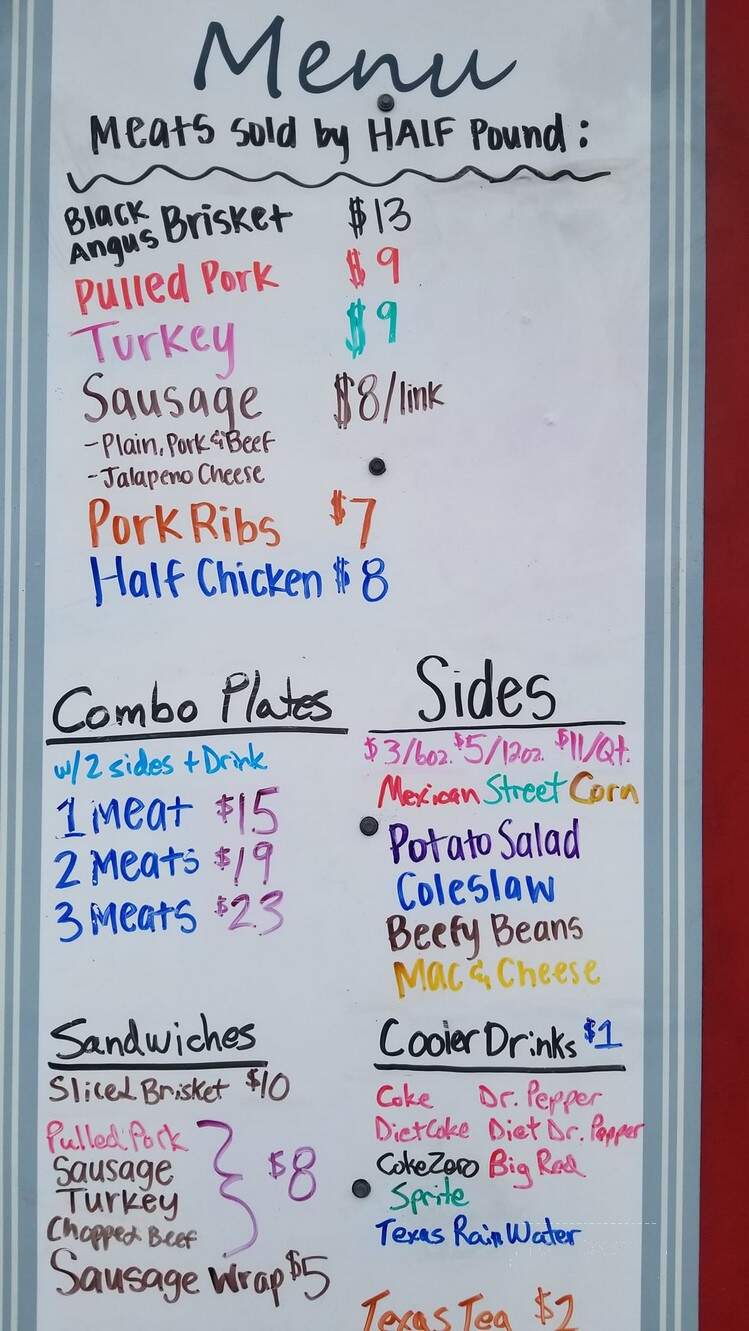 Menu
Meats sold by HALF Pound:
Black Angus Brisket $13
Pulled Pork $9
Turkey $9
Sausage $8/link
-Plain, Pork & Beef
-Jalapeno Cheese
Pork Ribs $7
Half Chicken $8
Combo Plates
w/2 sides + Drink
1 Meat $15
2 Meats $19
3 Meats $23
Sides
$3/6oz. $5/12oz. $11/Qt.
Mexican Street Corn
Potato Salad
Coleslaw
Beefy Beans
Mac & Cheese
Sandwiches
Sliced Brisket $10
Pulled Pork
Sausage
Turkey
Chopped Beef
$8
Sausage Wrap $5
Cooler Drinks $1
Coke Dr. Pepper
Diet Coke Diet Dr. Pepper
Coke Zero Big Red
Sprite
Texas Rain Water
Texas Tea $2